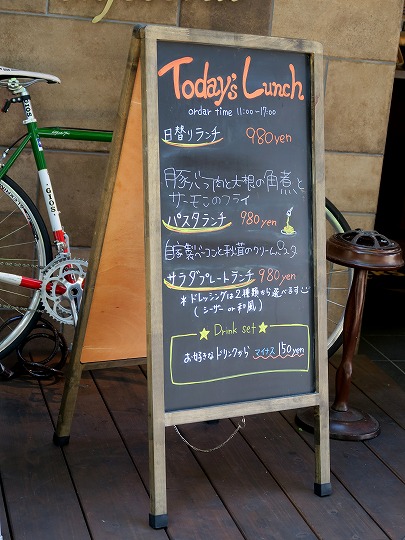 Today's Lunch
ordar time 11:00-17:00
日替りランチ 980yen
豚バラ肉と大根の角煮と
サーモンのフライ
パスタランチ 980yen
自家製ベーコンと秋茄のクリームパスタ
サラダプレートランチ 980yen
*ドレッシングは2種類から選べます
(シーザー or 和風)
Drink set
お好きなドリンクから マイナス150yen
GIOS